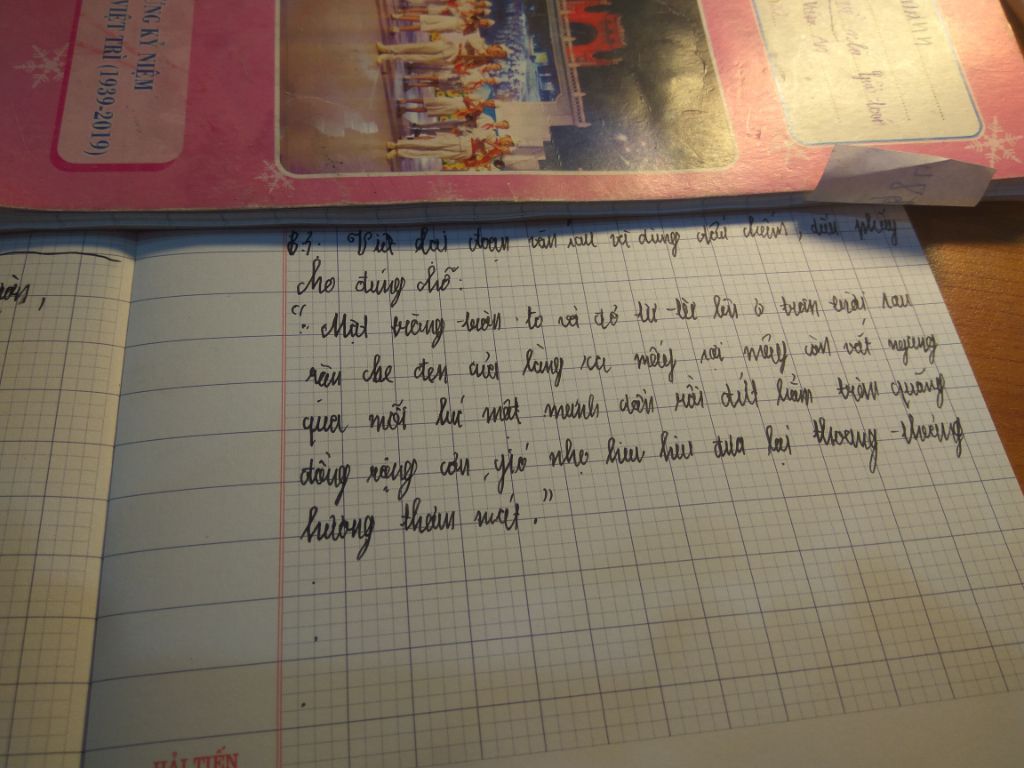 ỨNG KỶ NIỆM
VIỆT TRÌ (1939-2019)
B3. Viết lại đoạn văn sau và dùng dấu chấm, dấu phẩy
cho đúng chỗ:
"Mặt trăng tròn to và đỏ từ từ lên ở trân trời sau
rặn tre đen của làng xa mấy sợi mây còn vắt ngang
qua mỗi lúc một manh dần rồi đứt hẳn trên quãng
đồng rộng cơn gió nhẹ hiu hiu đưa lại thoang thoảng
hương thơm mát."
HẢI TIẾN